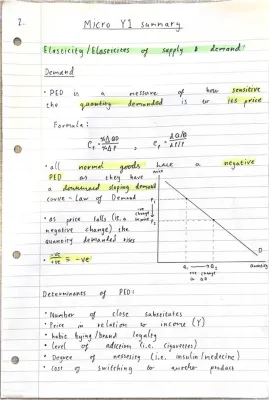 2.
Micro Y1 summary
Elasticity/Elasticites of supply & demand
Demand
• PED is a measure of how sensitive
the quantity demanded is to its price
Formula:
• all normal goods have a negative
PED as they have
a downward sloping demand
curve - Law of Demand
• as price falls (i.e. a
negative change) the
quantity demanded rises
• -ve
+ve = -ve
price
P1
P2
-ve
change
in price
D
Q1 → Q2
quantity
+ve change
in QD
Determinants of PED:
• Number of close substitutes
• Price in relation to income (Y)
• habit buying/brand loyalty
• level of addiction (i.e. cigarettes)
• Degree of necessity (i.e. insulin/medecine)
• Cost of switching to another product